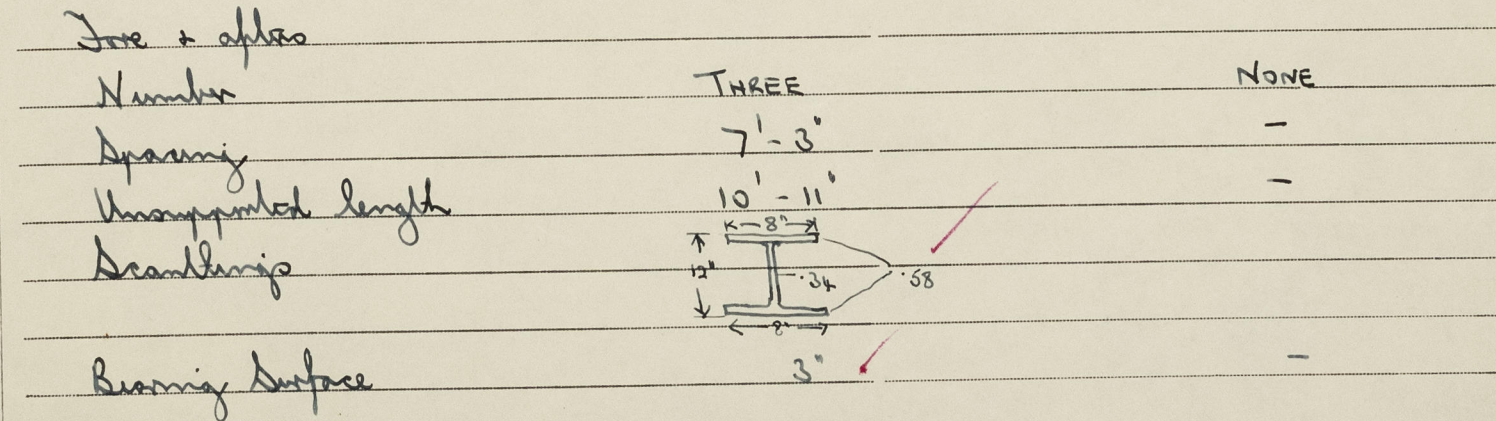 Fore & afters
Number THREE NONE
Spacing 7'-3" -
Unsupported length 10'-11" -
8"
Scantlings 12" .34 .58
8"
Bearing Surface 3" -